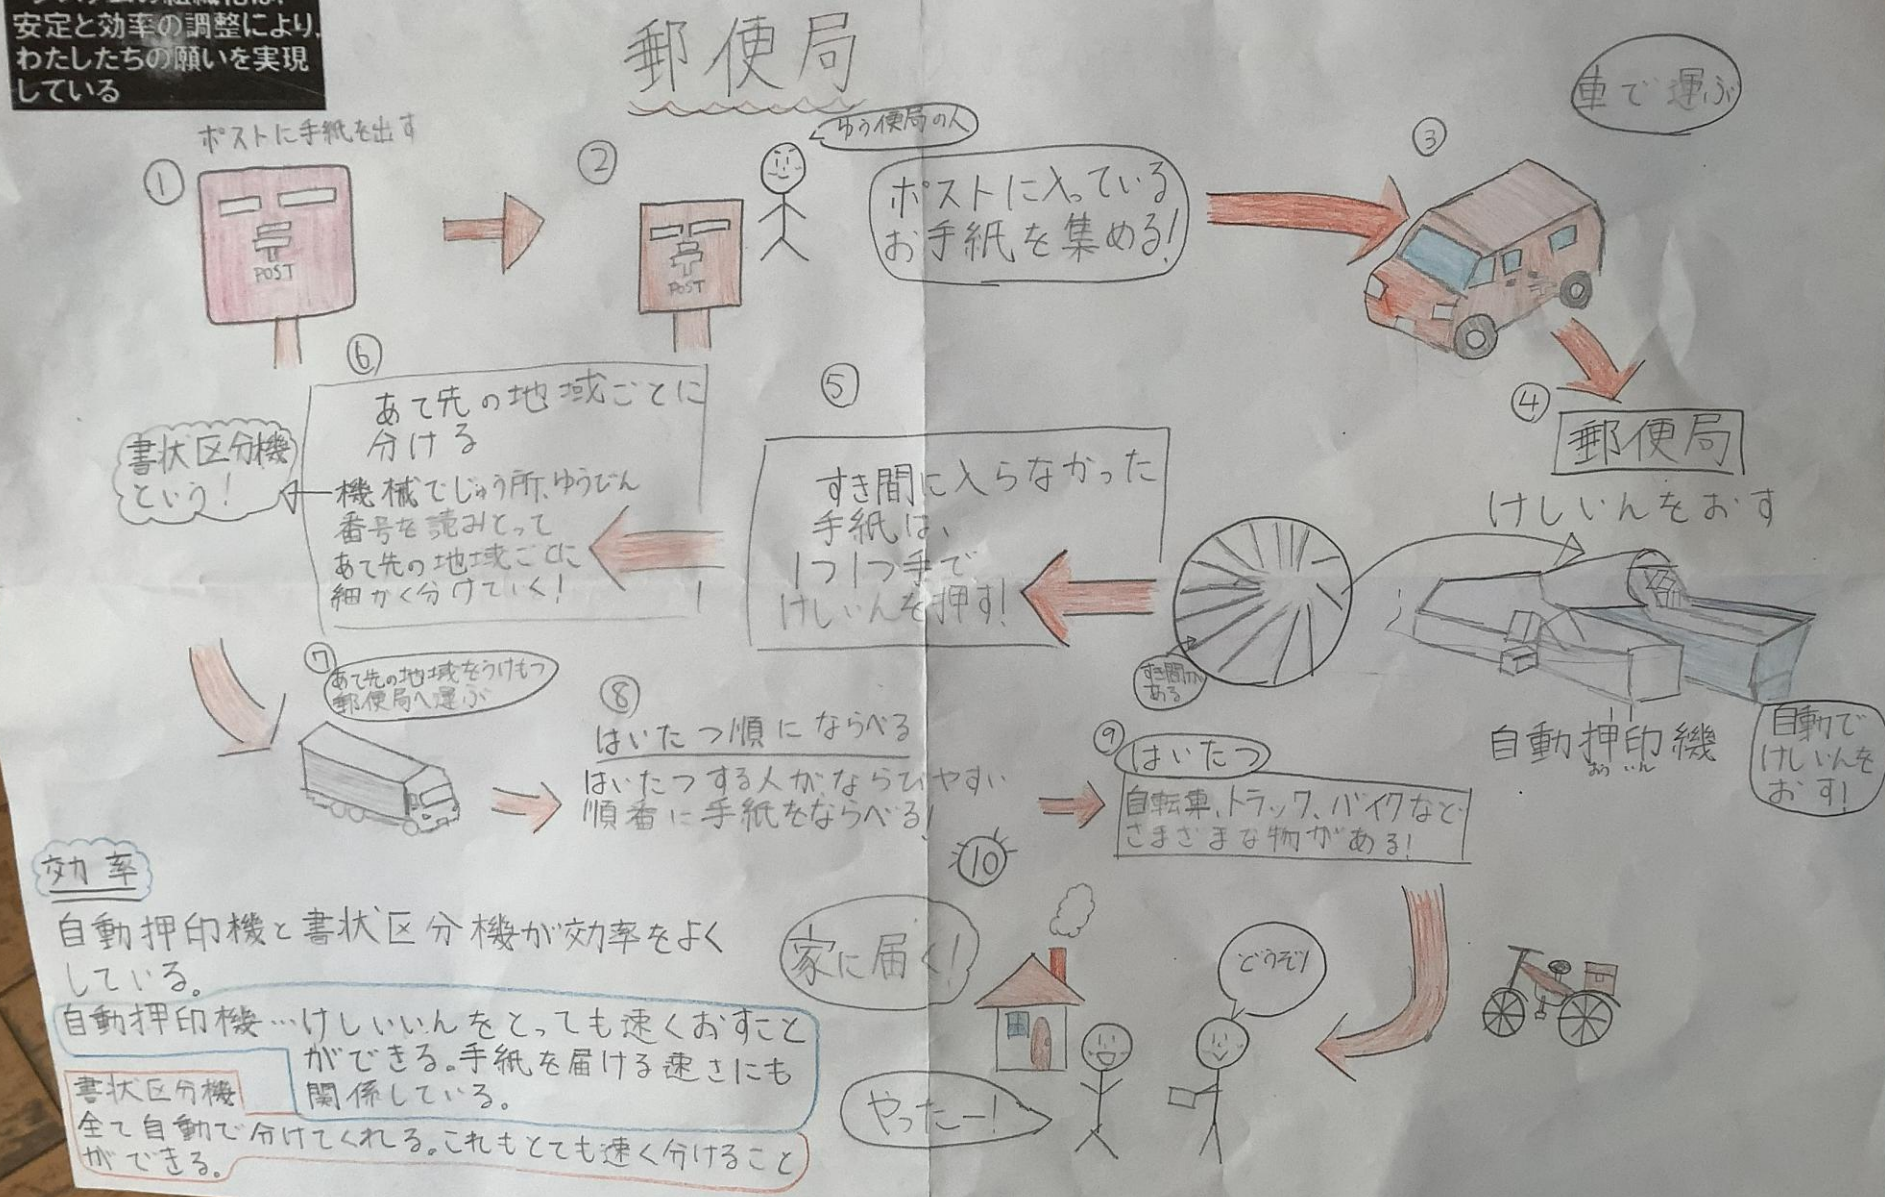 安定と効率の調整により、
わたしたちの願いを実現
している
郵便局
ポストに手紙を出す
①
POST
②
POST
ゆう便局の人
ポストに入っている
お手紙を集める!
③
車で運ぶ
④
郵便局
けしいんをおす
すき間が
ある
自動押印機
おういん
自動で
けしいんを
おす!
⑤
すき間に入らなかった
手紙は、
1つ1つ手で
けしいんを押す!
⑥
あて先の地域ごとに
分ける
機械でじゅう所、ゆうびん
番号を読みとって
あて先の地域ごとに
細かく分けていく!
書状区分機
という!
⑦
あて先の地域をうけもつ
郵便局へ運ぶ
⑧
はいたつ順にならべる
はいたつする人がならびやすい
順番に手紙をならべる!
⑨
はいたつ
自転車、トラック、バイクなど
さまざまな物がある!
⑩
家に届く!
どうぞ!
やったー!
効率
自動押印機と書状区分機が効率をよく
している。
自動押印機…けしいいんをとっても速くおすこと
ができる。手紙を届ける速さにも
関係している。
書状区分機
全て自動で分けてくれる。これもとても速く分けること
ができる。